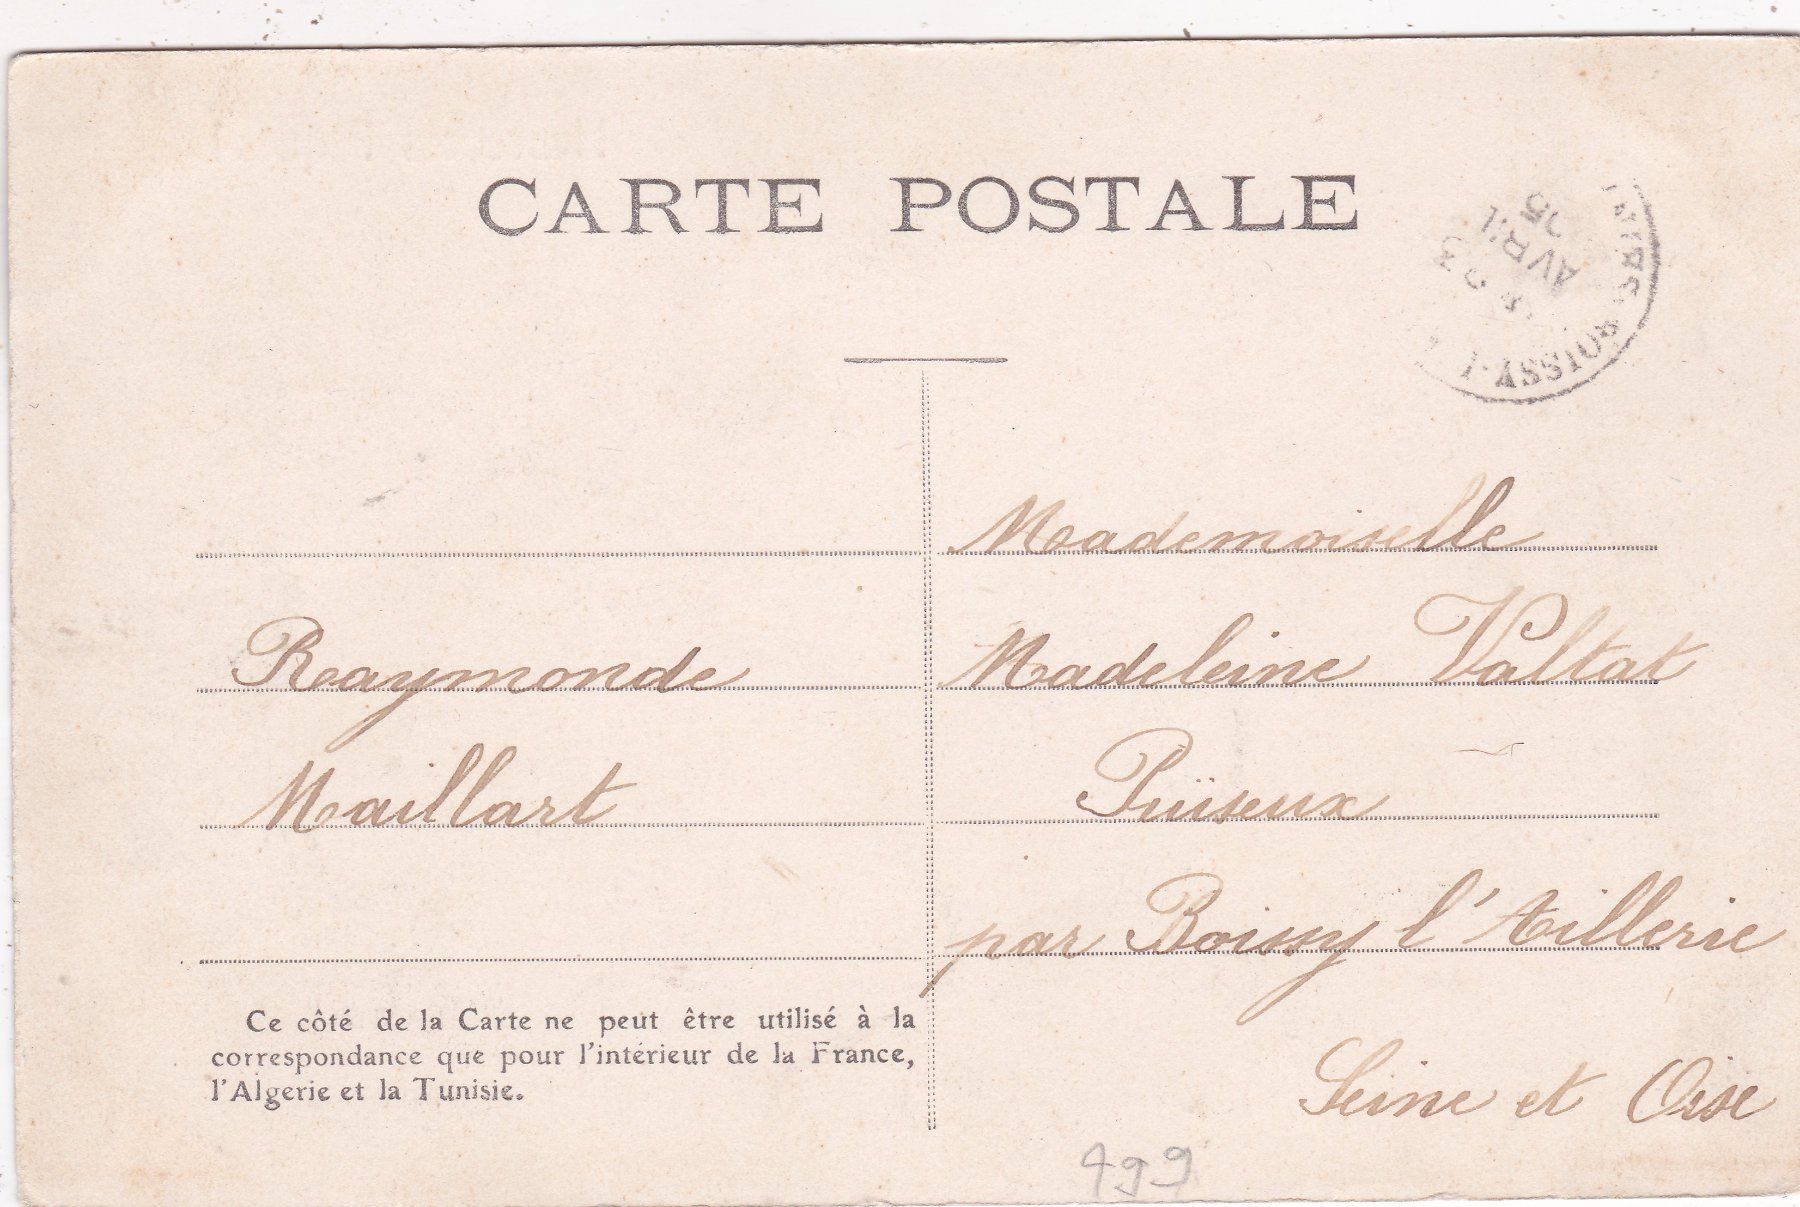 CARTE POSTALE
23
AVRIL
05
BOISSY-L
Mademoiselle
Raymonde
Maillart
Madeleine Valtat
Puïseux
par Boissy l'Aillerie
Seine et Oise
Ce côté de la Carte ne peut être utilisé à la
correspondance que pour l'intérieur de la France,
l'Algerie et la Tunisie.
499